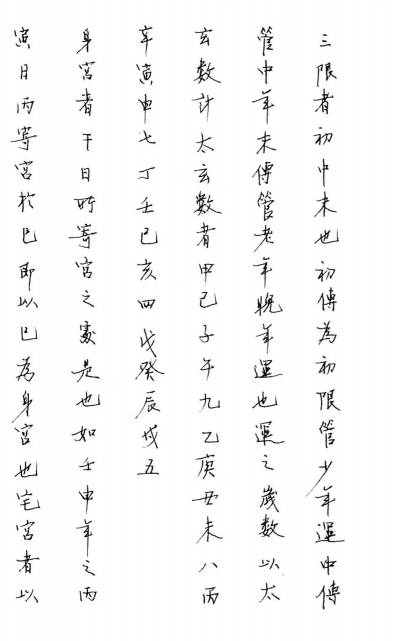 三限者初中末也初傳為初限管少年運中傳
管中年末傳管老年晚年運也運之歲數以太
玄數計太玄數者甲己子午九乙庚丑未八丙
辛寅申七丁壬巳亥四戊癸辰戌五
身宮者干日時寄宮之處是也如壬申年之丙
寅日丙寄宮於巳即以巳為身宮也宅宮者以